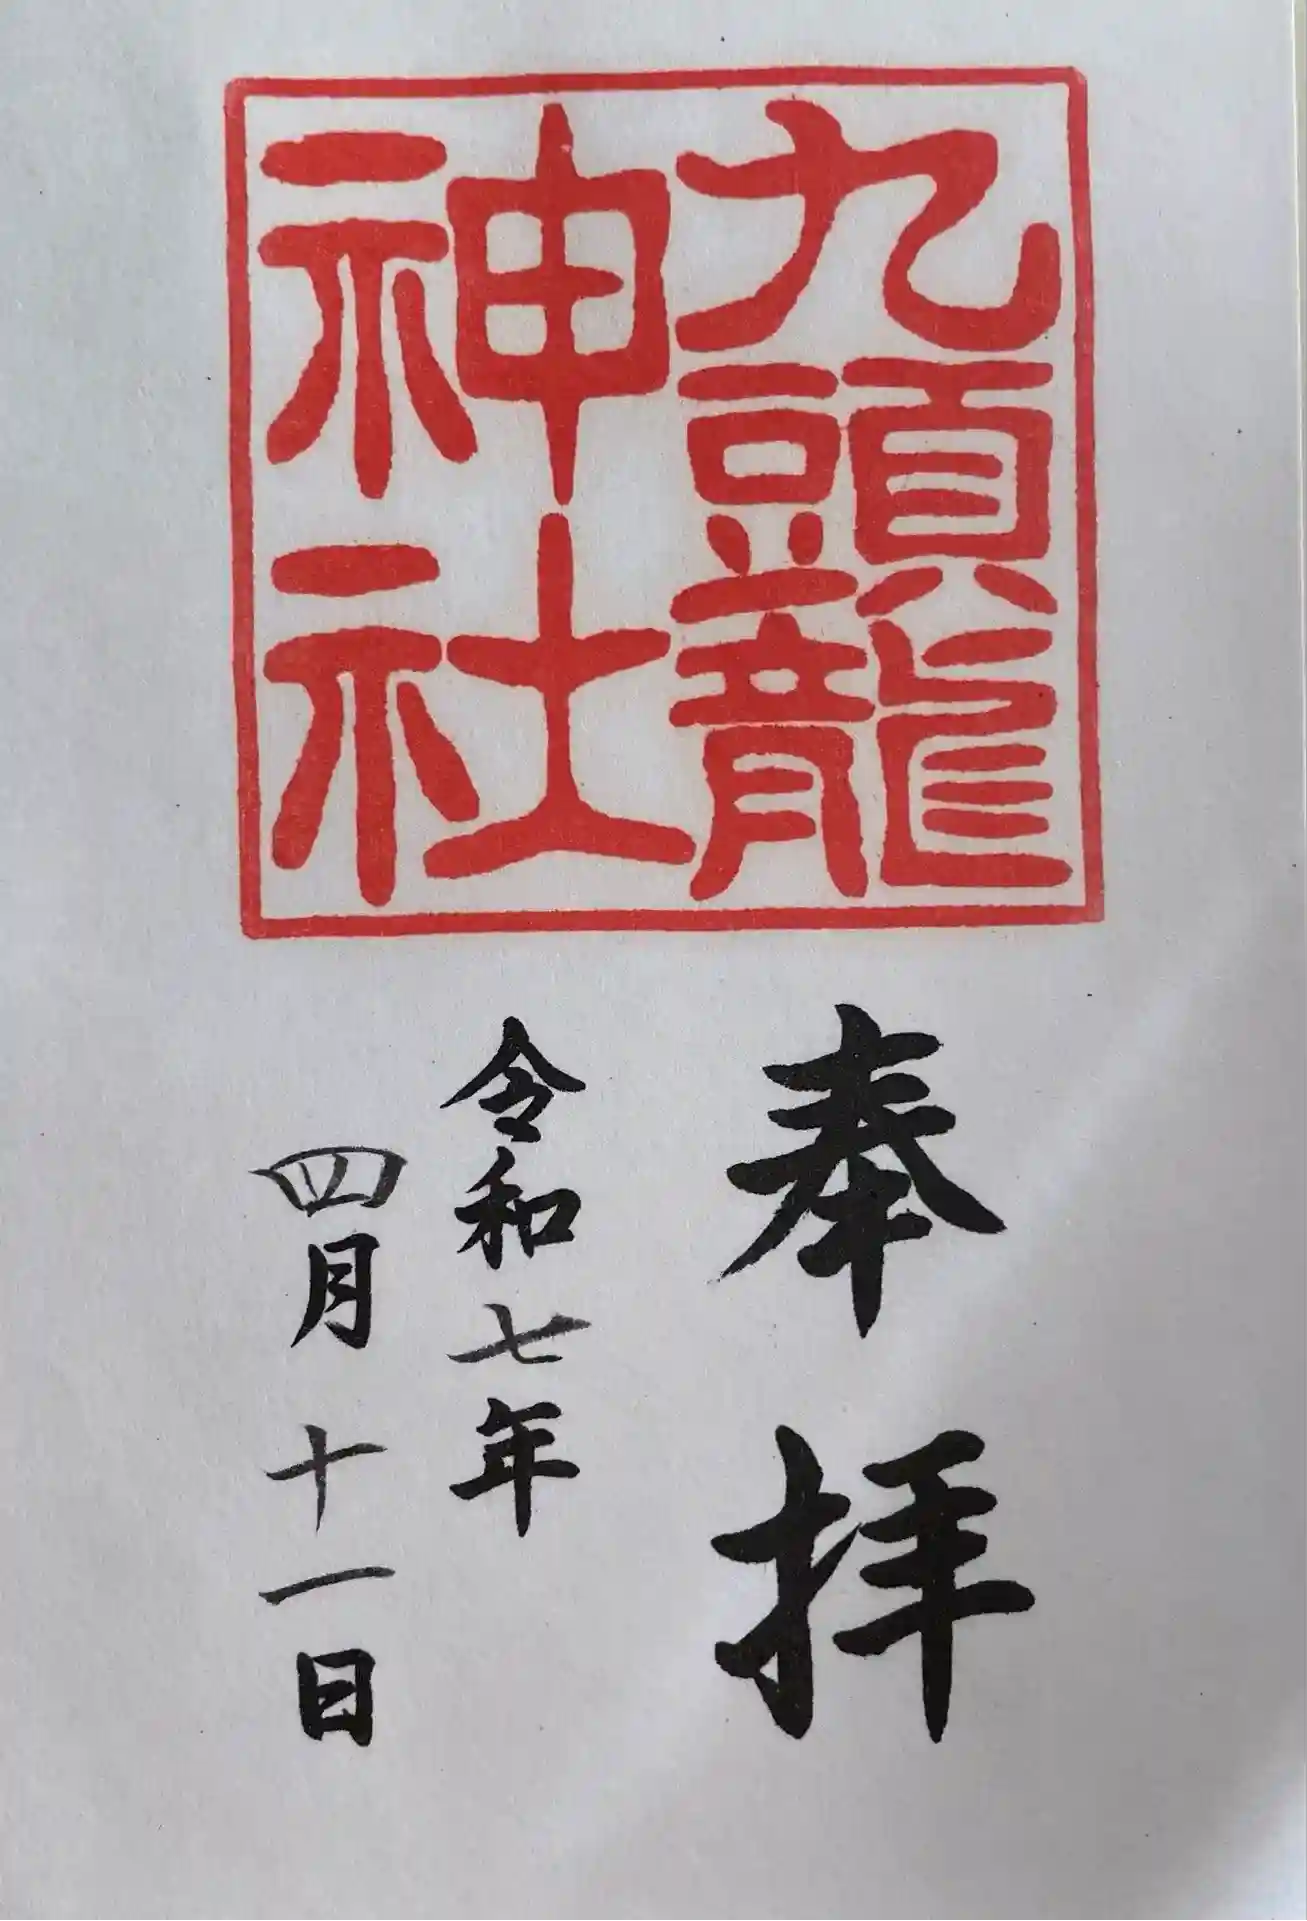 九頭龍
神社
奉拝
令和七年
四月十一日